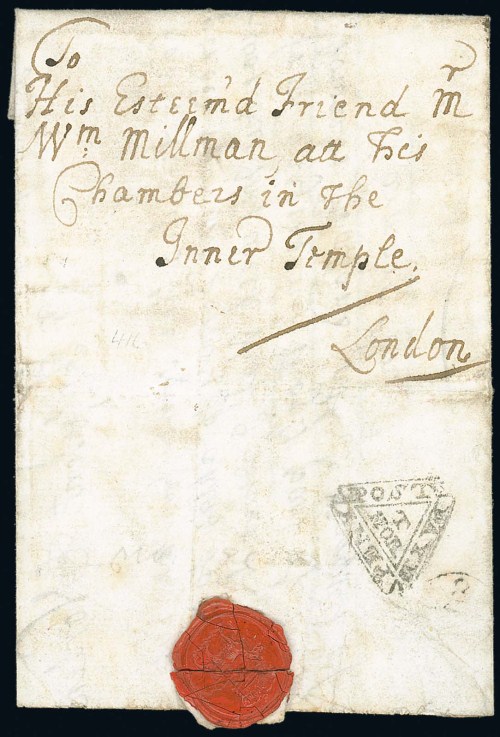 To
His Esteem'd Friend Mr
Wm: Millman att his
Chambers in the
Inner Temple.
London
POST
PAYD
PENNY
T
MOR